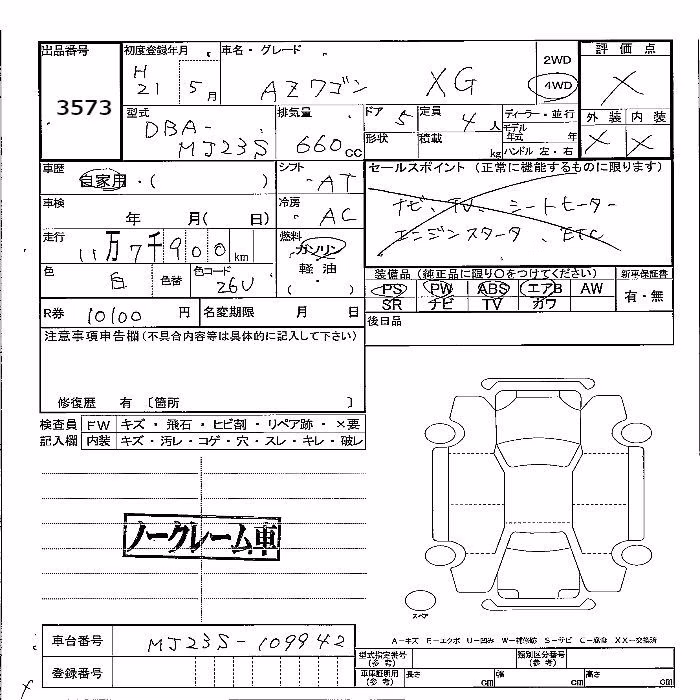 出品番号 初度登録年月 車名・グレード 2WD 評価点
3573 H21 5月 AZワゴン XG 4WD X
型式 排気量 ドア 5 定員 4人 ディーラー・並行 外装 内装
DBA-MJ23S 660cc 形状 積載 kg モデル年式 年 X X
ハンドル 左・右
車歴 自家用・( ) シフト AT セールスポイント (正常に機能するものに限ります)
車検 年 月( 日) 冷房 AC ナビ、TV、シートヒーター
走行 11万7千900km 燃料 ガソリン エンジンスタータ、ETC
色 白 色替 色コード 26U 軽油 ( ・ ) 装備品 (純正品に限り○をつけてください) 新車保証書
PS PW ABS エアB AW 有・無
R券 10100 円 名変期限 月 日 SR ナビ TV カワ
注意事項申告欄(不具合内容等は具体的に記入して下さい) 後日品
修復歴 有 〔箇所 〕
検査員 FW キズ・飛石・ヒビ割・リペア跡・×要
記入欄 内装 キズ・汚レ・コゲ・穴・スレ・キレ・破レ
ノークレーム車
スペア
A-キズ E-エクボ U-凹み W-補修跡 S-サビ C-腐食 XX-交換済
車台番号 MJ23S-109942
型式指定番号(参考) 類別区分番号(参考)
登録番号 車庫証明用(参考) 長さ cm 幅 cm 高さ cm